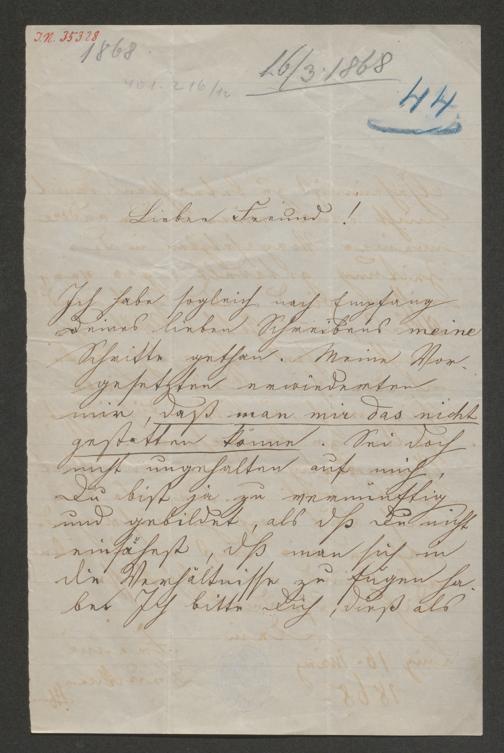 I.N. 35328
1868.
16/3. 1868
44
Lieber Freund!
Ich habe sogleich nach Empfang
Deines lieben Schreibens meine
Schritte gethan. Meine Vor-
gesetzten erwiederten
mir, daß man mir das nicht
gestatten könne. Sei doch
nicht ungehalten auf mich,
Du bist ja zu vernünftig
und gebildet, als dß Du nicht
einsähest, dß man sich in
die Verhältnisse zu fügen ha-
be. Ich bitte Dich, dieß als